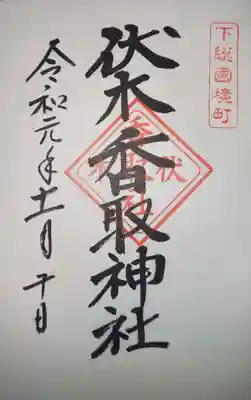 下総國境町
伏木香取神社
令和元年十一月十日